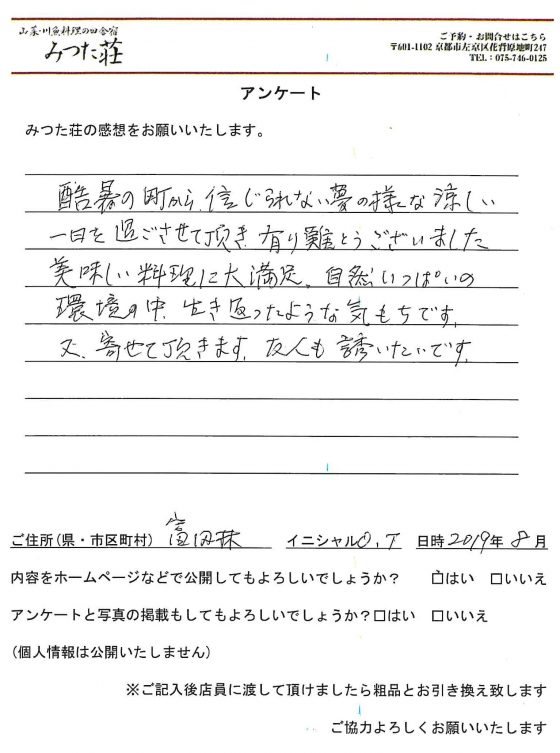 山菜・川魚料理の田舎宿
みつた荘
ご予約・お問合せはこちら
〒601-1102 京都市左京区花背原地町247
TEL:075-746-0125
アンケート
みつた荘の感想をお願いいたします。
酷暑の町から、信じられない夢の様な涼しい
一日を過ごさせて頂き、有り難とうございました
美味しい料理に大満足、自然いっぱいの
環境の中、生き返ったような気もちです。
又、寄せて頂きます。友人も誘いたいです。
ご住所(県・市区町村) 富田林 イニシャル O.T 日時 2019年 8月
内容をホームページなどで公開してもよろしいでしょうか? □はい □いいえ
アンケートと写真の掲載もしてもよろしいでしょうか?□はい □いいえ
(個人情報は公開いたしません)
※ご記入後店員に渡して頂けましたら粗品とお引き換え致します
ご協力よろしくお願いいたします